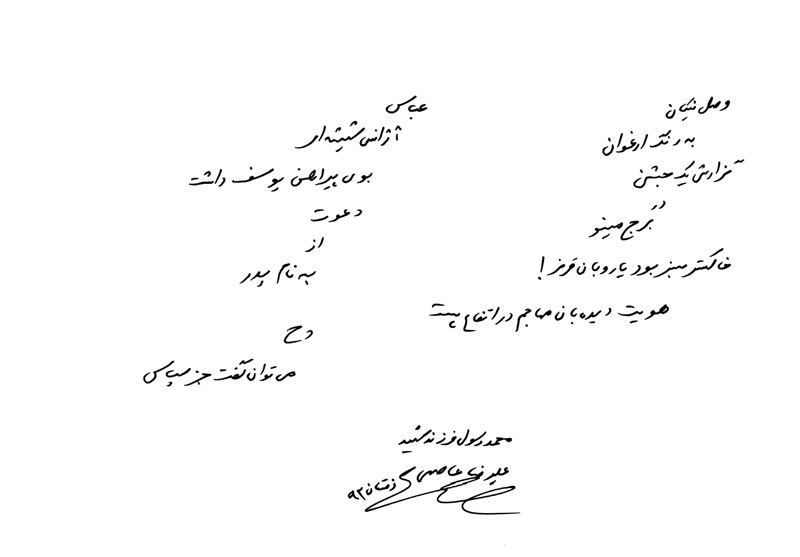 وصل نیکان
به رنگ ارغوان
گزارش یک جشن
در
برج مینو
خاکستر سبز بود یا روبان قرمز !
هویت دیده بان مهاجر در ارتفاع پست
عباس
آژانس شیشه ای
بوی پیراهن یوسف داشت
دعوت
از
به نام پدر
و چ
می توان گفت جز سپاس
محمد رسول فرزند شهید
علیرضا عاصمی زمستان ۹۲